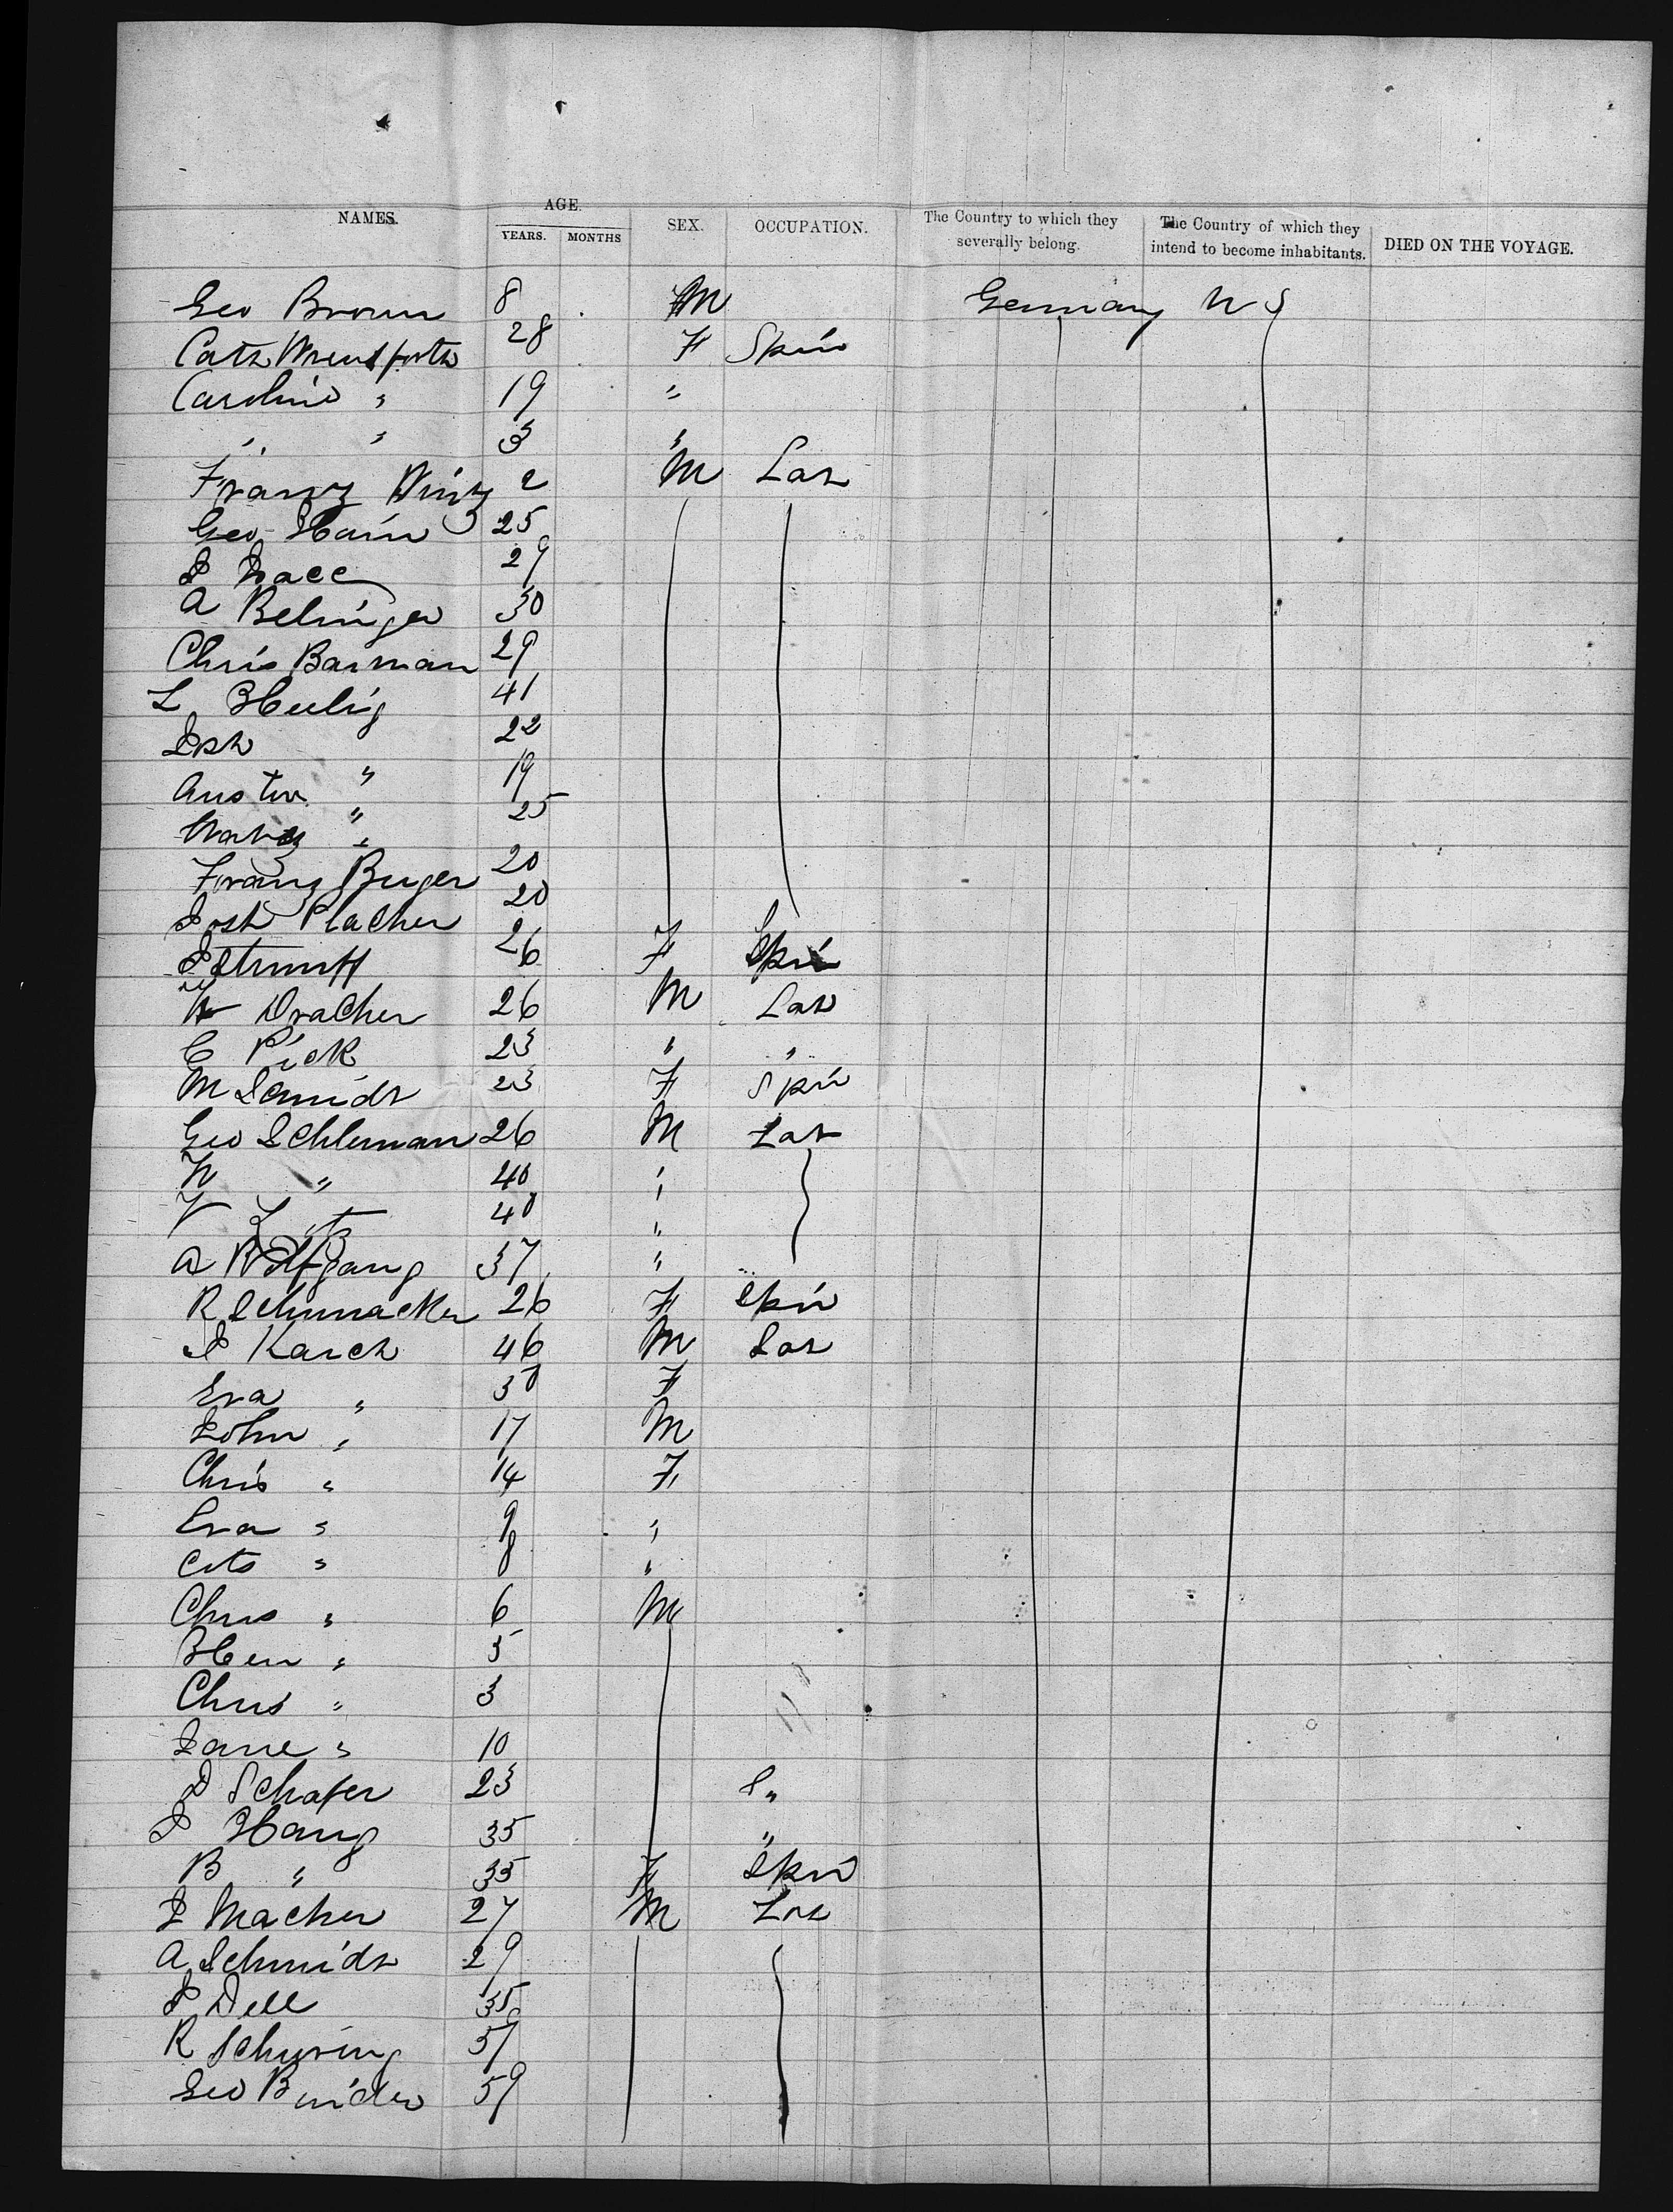 NAMES. AGE. YEARS. MONTHS SEX. OCCUPATION. The Country to which they severally belong. The Country of which they intend to become inhabitants. DIED ON THE VOYAGE.
Geo Brown 8 M Germany U S
Cath 28 F Spin
Caroline " 19 "
" " 3 "
Franz Winz 2 M Lab
Geo Hain 25
29
A Belinger 30
Chris Barman 29
L Heelig 41
Jos " 22
Austin " 19
" 25
Franz Buger 20
Josh Placher 20
Strumff 26 F Spin
W Dracher 26 M Lab
C Pick 23 " "
M Scmidt 23 F Spin
Geo Schleman 26 M Lab
N " 40 "
V 40 "
A Wolfgang 37 "
R Schumacker 26 F Spin
J Karch 46 M Lab
Eva " 30 F
John " 17 M
Chris " 14 F
Eva " 9 "
" 8 "
Chris " 6 M
Hen " 5
Chris " 3
Jane " 10
D Schafer 23 L "
J Hang 35 "
B " 35 F Spin
J Macher 27 M Lab
A Schmidt 29
J Dell 35
R Schuring 59
Geo Binder 59